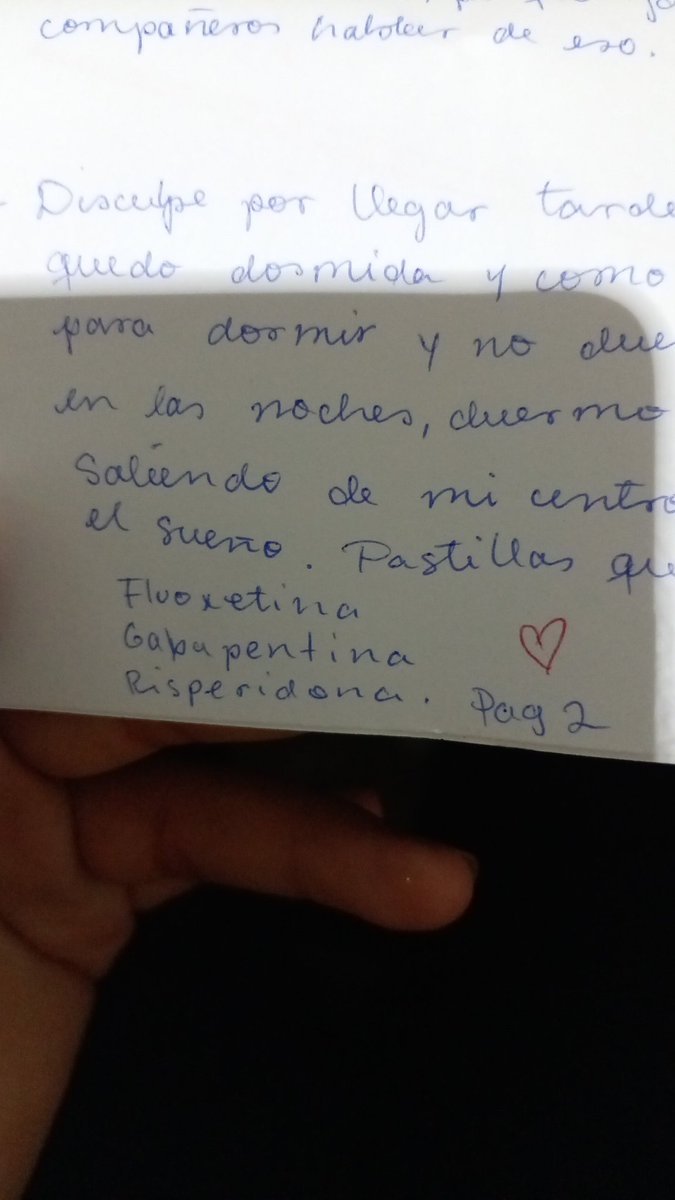 compañeros hablar de eso.
- Disculpe por llegar tarde
quedo dosmida y como
para dormir y no due
en las noches, duermo
Saliendo de mi centro
el sueño. Pastillas qu
Fluoxetina
Gabapentina
Risperidona.
Pag 2